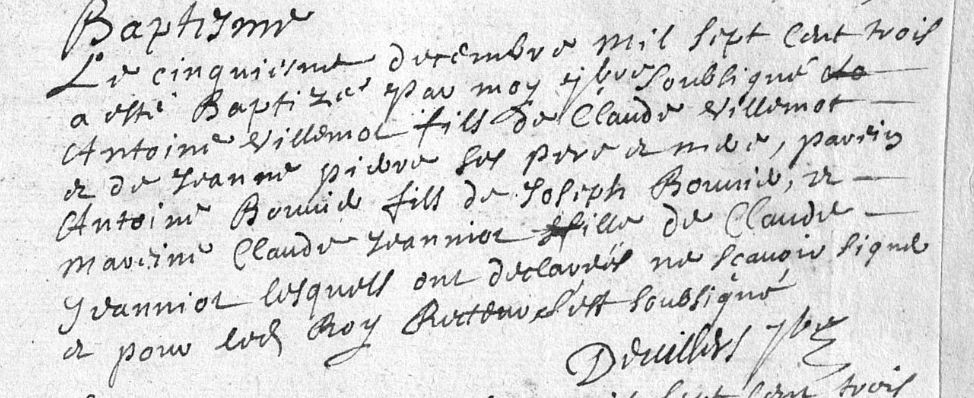 Baptisme
Le cinquiesme decembre mil sept cent trois
a esté Baptizé par moy pbre soubsigné
Antoine Villemot fils de Claude Villemot
et de Jeanne pierre ses pere et mere, parein
Antoine fils de Joseph et
mareine Claude Jeanniot fille de Claude
Jeanniot lesquels ont declarés ne sçavoir signer
et pour led Roy Recteur s'est soubsigné
Devillers pbre
sept cent trois